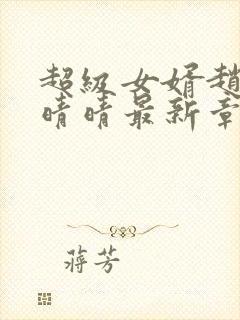 超级女婿趙
晴晴最新章
蒋芳